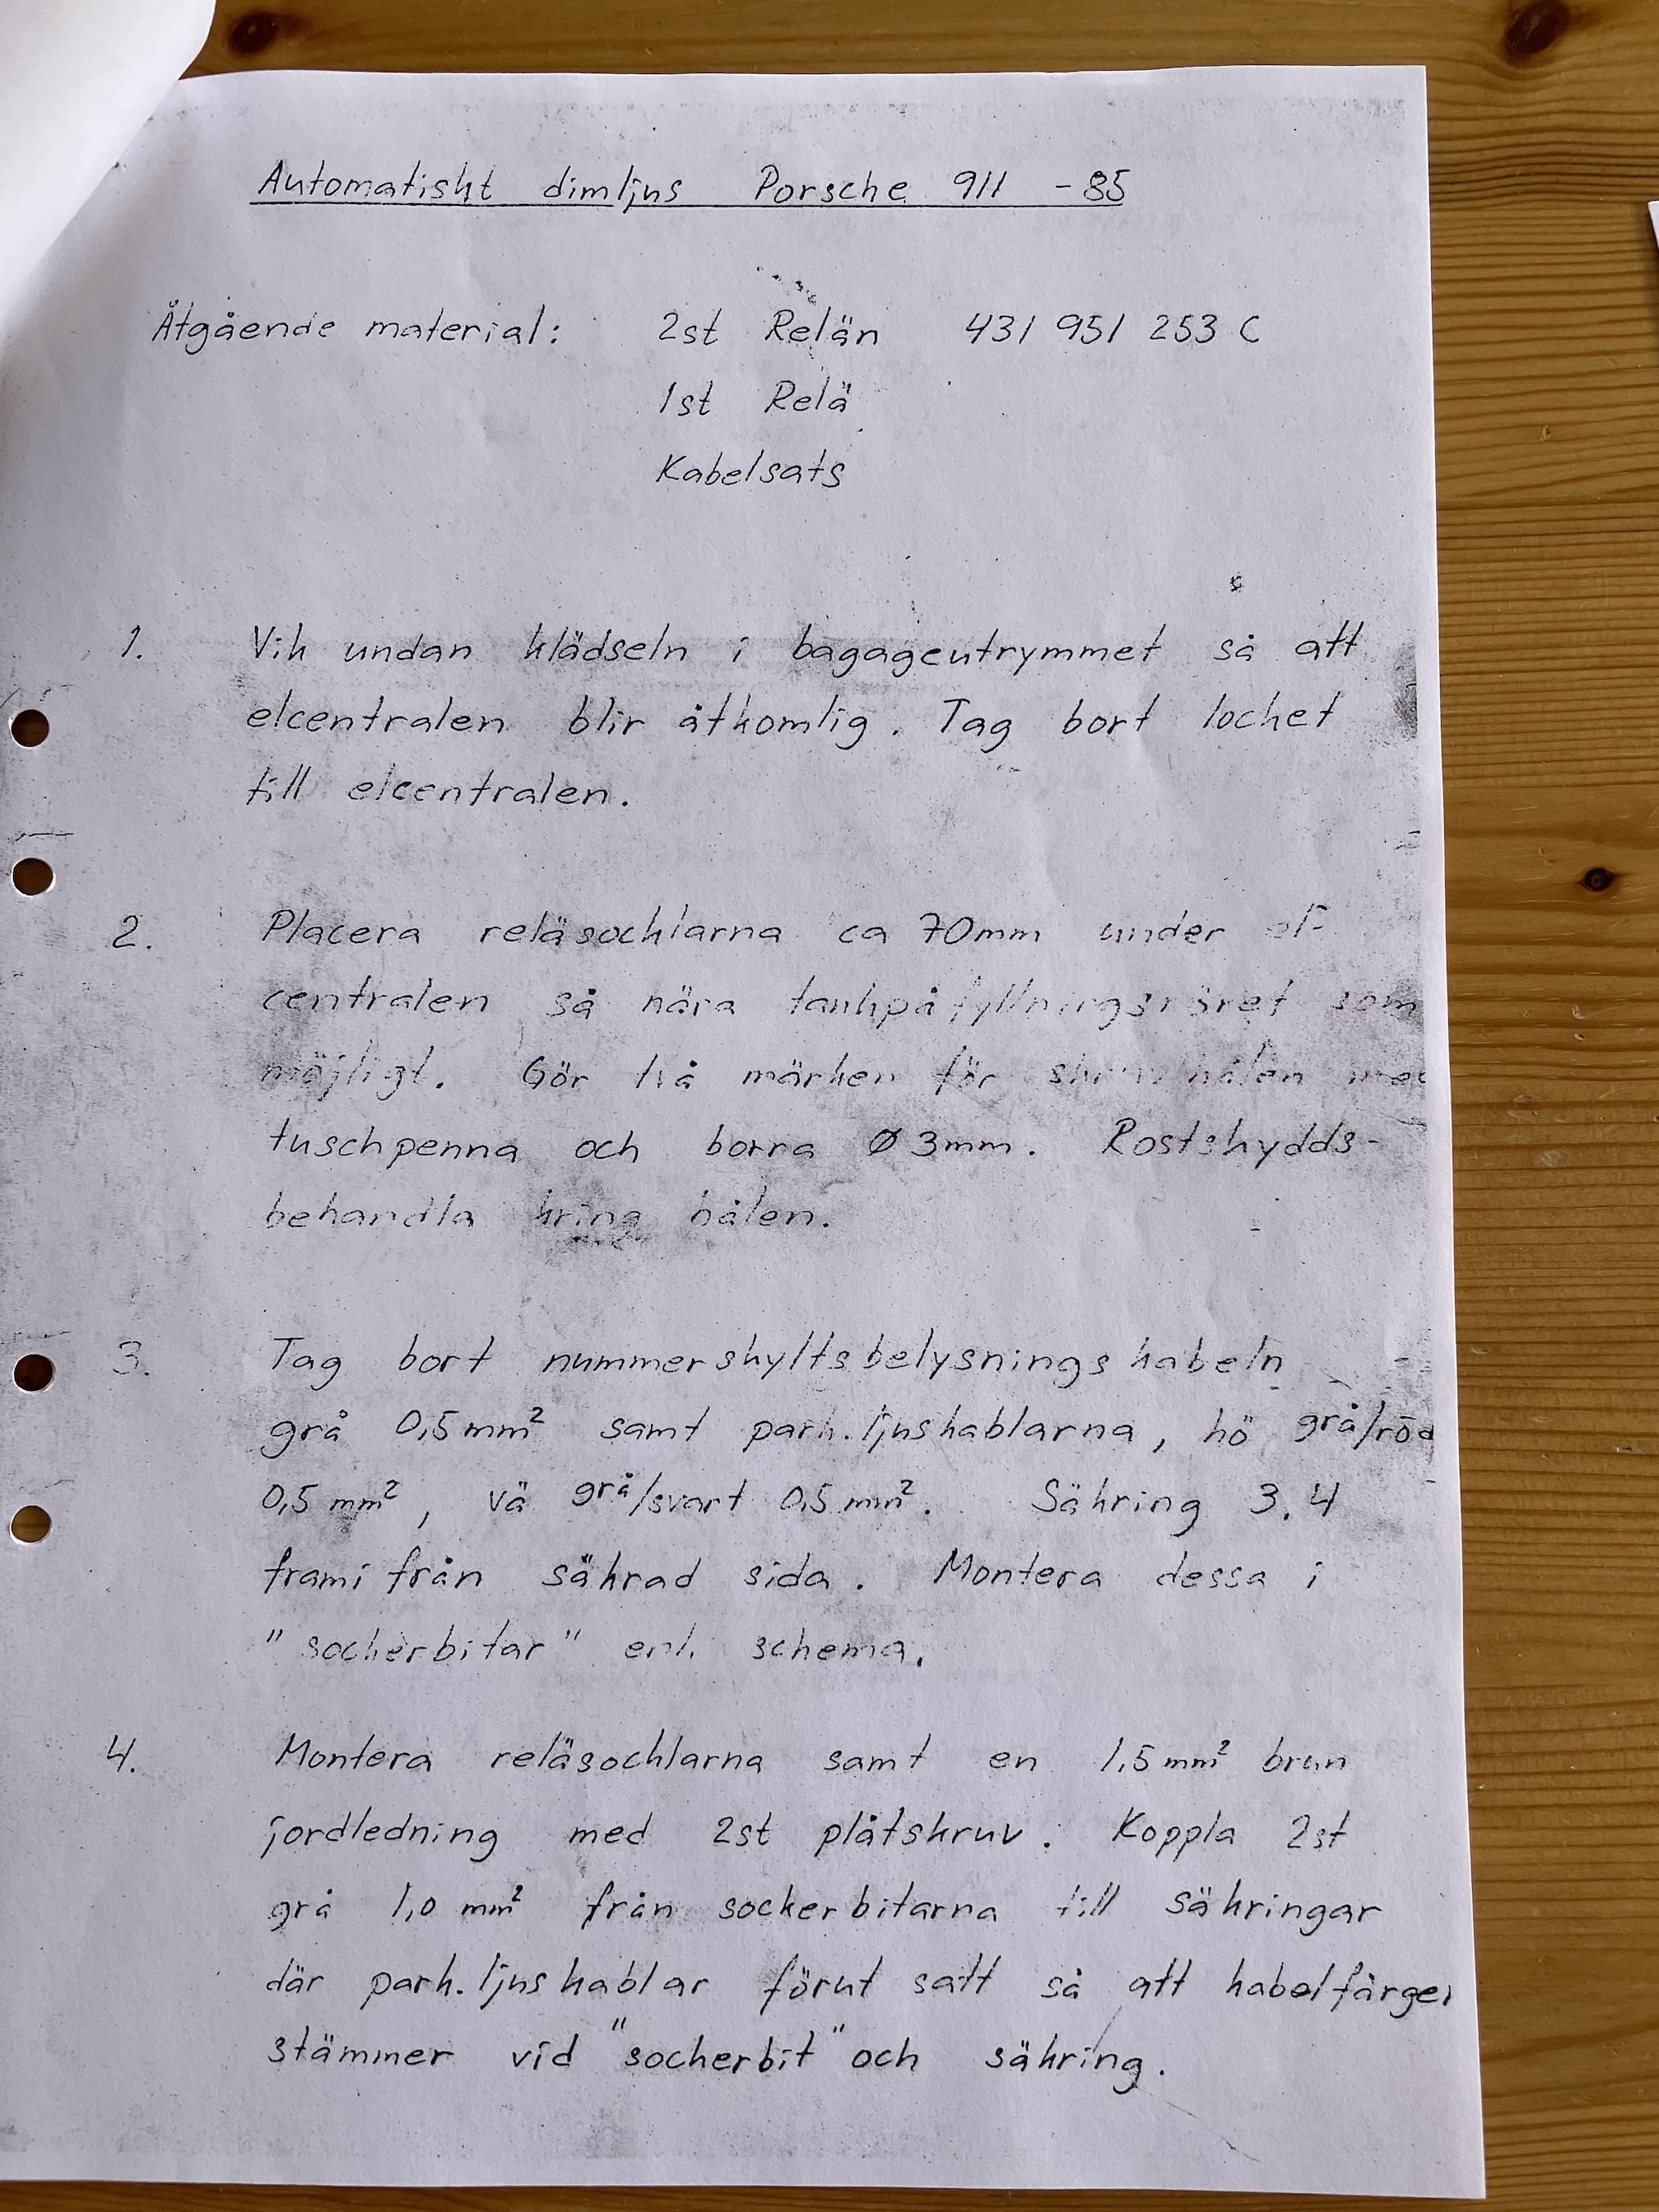 Automatiskt dimljus Porsche 911 -85
Åtgående material: 2st Relän 431 951 253 C
1st Relä
Kabelsats
1. Vik undan klädseln i bagageutrymmet så att
elcentralen blir åtkomlig. Tag bort locket
till elcentralen.
2. Placera reläsocklarna ca 70mm under el-
centralen så nära tankpåfyllningsröret som
möjligt. Gör två märken för skruvhålen med
tuschpenna och borra Ø 3mm. Rostskydds-
behandla kring hålen.
3. Tag bort nummerskyltsbelysningskabeln
grå 0,5mm² samt park.ljuskablarna, hö grå/röd
0,5 mm², vä grå/svart 0,5 mm². Säkring 3,4
framifrån säkrad sida. Montera dessa i
"sockerbitar" enl. schema.
4. Montera reläsocklarna samt en 1,5mm² brun
jordledning med 2st plåtskruv. Koppla 2st
grå 1,0 mm² från sockerbitarna till säkringar
där park.ljuskablar förut satt så att kabelfärger
stämmer vid "sockerbit" och säkring.